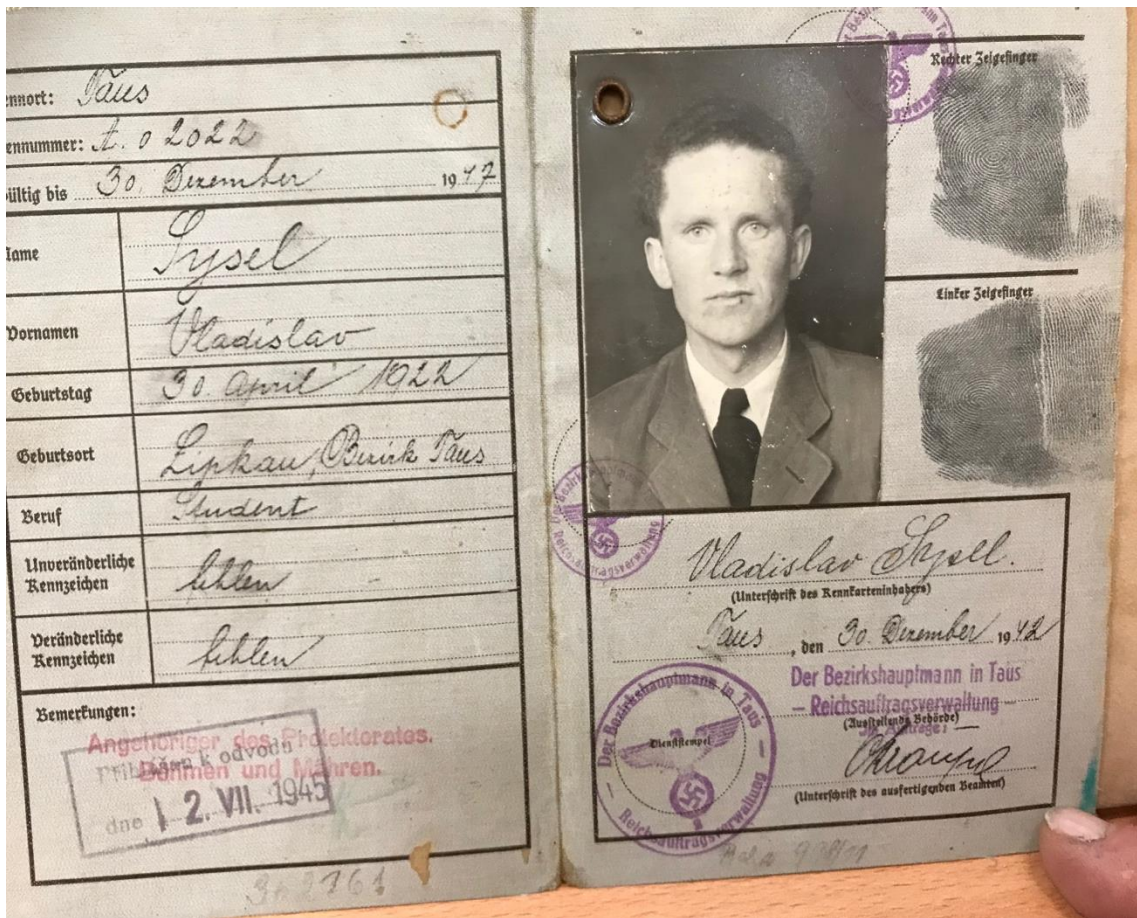 ennort: Taus
ennummer: A. 0 2022
ültig bis 30. Dezember 1947
Name Sysel
Vornamen Vladislav
Geburtstag 30. April 1922
Geburtsort Lipkau, Bezirk Taus
Beruf Student
Unveränderliche
Kennzeichen fehlen
Veränderliche
Kennzeichen fehlen
Bemerkungen:
Angehöriger des Protektorates.
Böhmen und Mähren.
k odvodu
dne 12. VII. 1945
Rechter Zeigefinger
Linker Zeigefinger
Der Bezirkshauptmann in Taus
Reichsauftragsverwaltung
Vladislav Sysel.
(Unterschrift des Kennkarteninhabers)
Taus, den 30. Dezember 1942
Der Bezirkshauptmann in Taus
— Reichsauftragsverwaltung —
(Ausstellende Behörde)
Im Auftrage:
(Unterschrift des ausfertigenden Beamten)
Dienststempel
Der Bezirkshauptmann in Taus
— Reichsauftragsverwaltung —